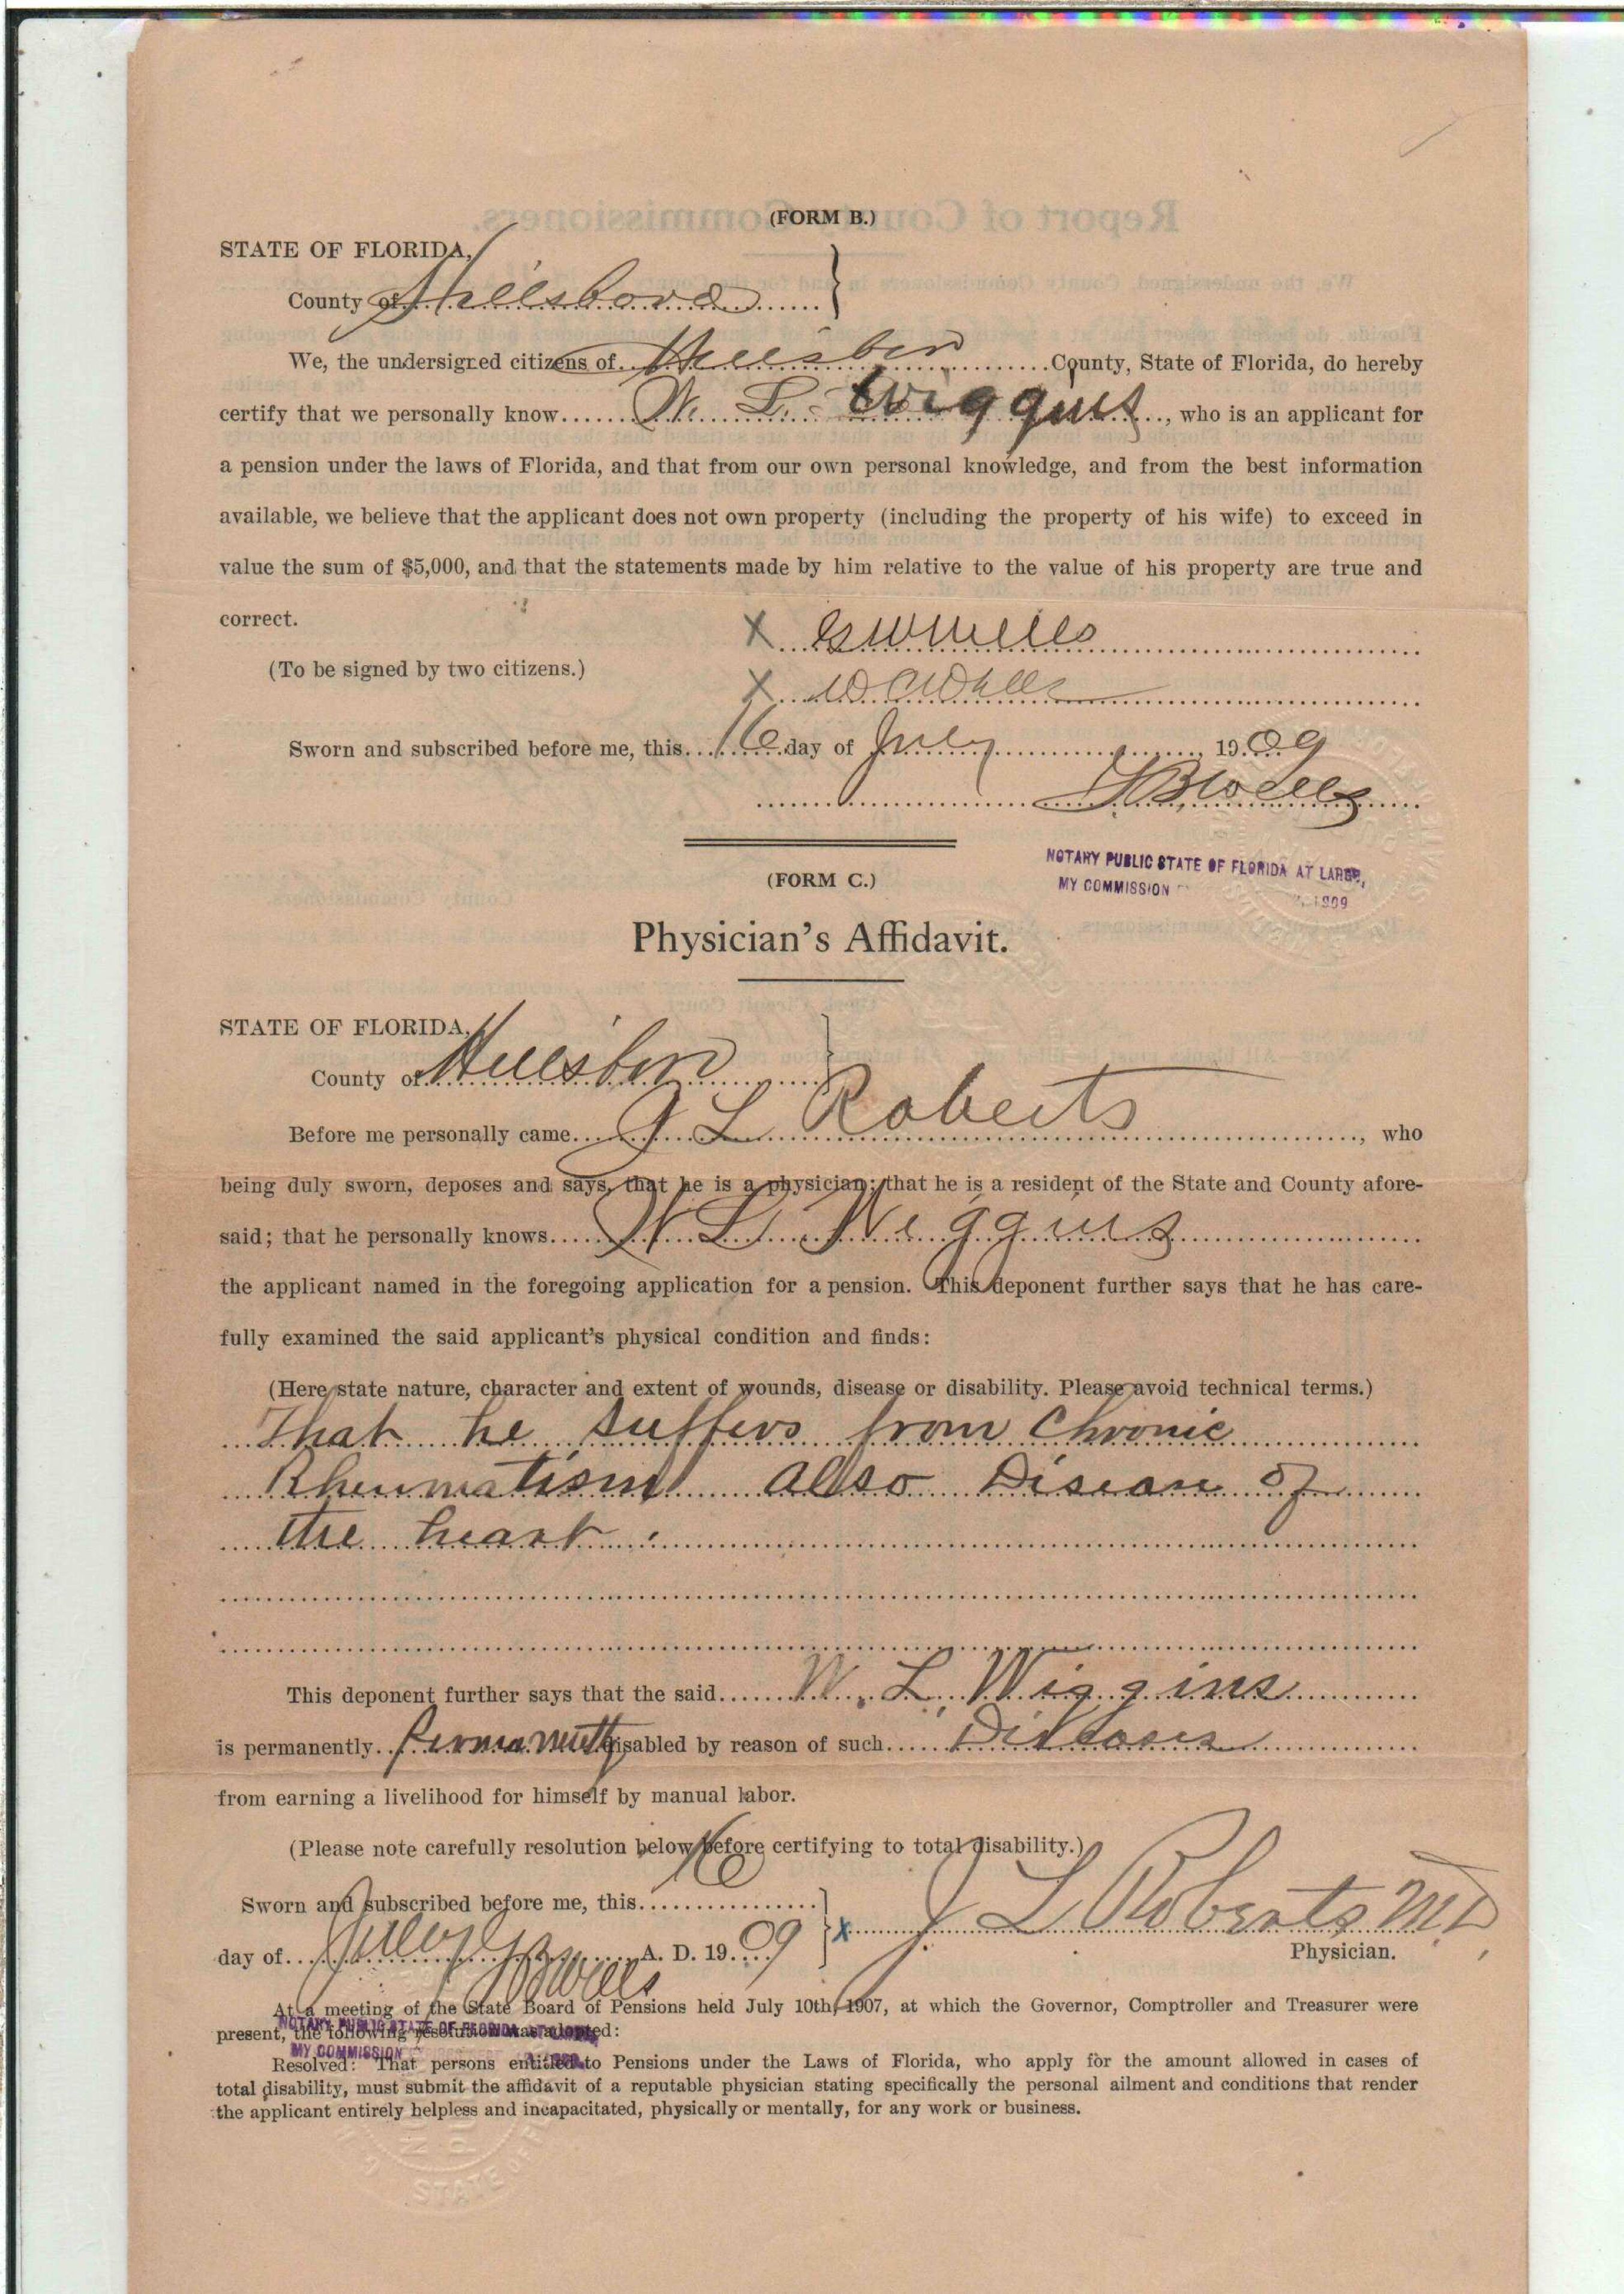 (FORM B.)
STATE OF FLORIDA,
County of Hillsboro
We, the undersigned citizens of Hillsboro County, State of Florida, do hereby
certify that we personally know W. L. Wiggins, who is an applicant for
a pension under the laws of Florida, and that from our own personal knowledge, and from the best information
available, we believe that the applicant does not own property (including the property of his wife) to exceed in
value the sum of $5,000, and that the statements made by him relative to the value of his property are true and
correct.
X
(To be signed by two citizens.)
X
Sworn and subscribed before me, this 16 day of July, 1909
Wells
NOTARY PUBLIC STATE OF FLORIDA AT LARGE,
MY COMMISSION 1909
(FORM C.)
Physician's Affidavit.
STATE OF FLORIDA,
County of Hillsboro
Before me personally came J L Roberts, who
being duly sworn, deposes and says, that he is a physician; that he is a resident of the State and County afore-
said; that he personally knows W L Wiggins
the applicant named in the foregoing application for a pension. This deponent further says that he has care-
fully examined the said applicant's physical condition and finds:
(Here state nature, character and extent of wounds, disease or disability. Please avoid technical terms.)
That he suffers from Chronic
Rheumatism also Disease of
the heart.
This deponent further says that the said W. L. Wiggins
is permanently permanently disabled by reason of such
from earning a livelihood for himself by manual labor.
(Please note carefully resolution below before certifying to total disability.)
Sworn and subscribed before me, this 16
day of July A. D. 1909
x J L Roberts MD
Physician.
Wells
At a meeting of the State Board of Pensions held July 10th, 1907, at which the Governor, Comptroller and Treasurer were
present, the following resolution was adopted:
NOTARY PUBLIC STATE OF FLORIDA AT LARGE
MY COMMISSION
Resolved: That persons entitled to Pensions under the Laws of Florida, who apply for the amount allowed in cases of
total disability, must submit the affidavit of a reputable physician stating specifically the personal ailment and conditions that render
the applicant entirely helpless and incapacitated, physically or mentally, for any work or business.